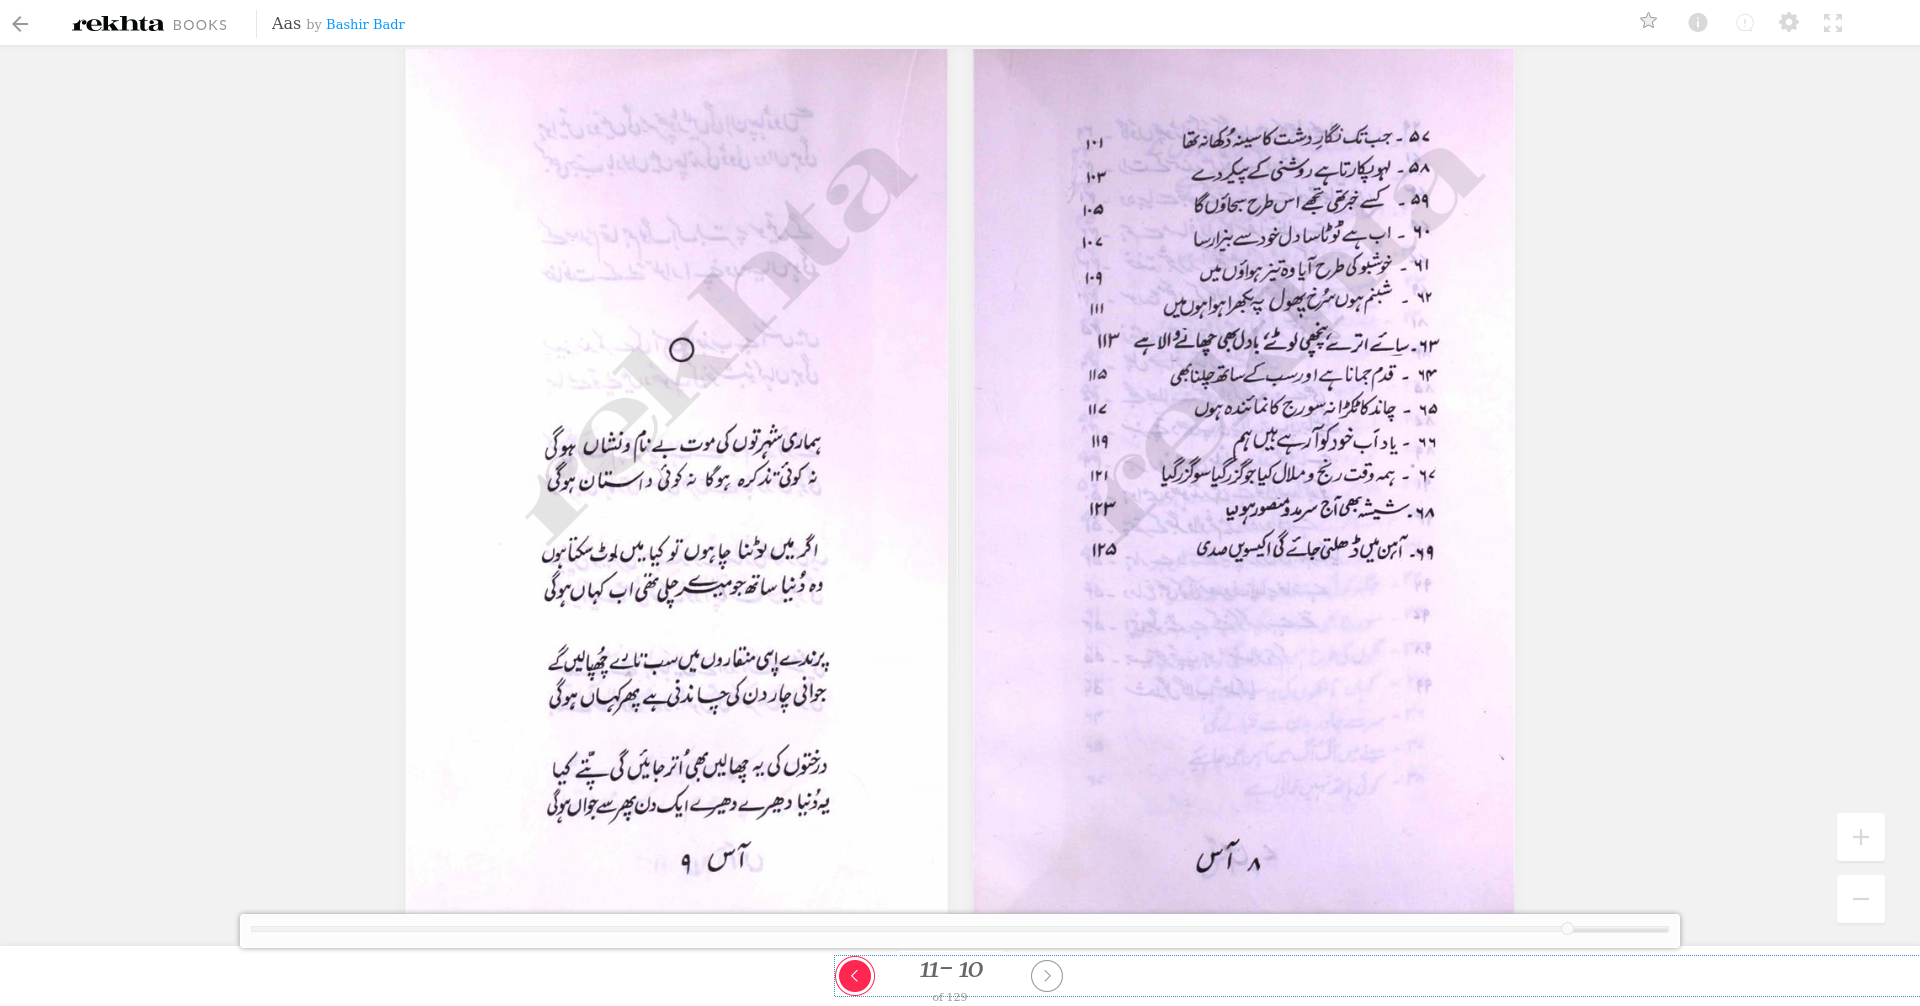 rekhta BOOKS Aas by Bashir Badr
۵۷ - جب تک نگارِ دشت کا سینہ دُکھا نہ تھا ۱۰۱
۵۸ - لہو پکارتا ہے روشنی کے پیکر دے ۱۰۳
۵۹ - کسے خبر تھی تجھے اس طرح سجاؤں گا ۱۰۵
۶۰ - اب ہے ٹوٹا سا دل خود سے بیزار سا ۱۰۷
۶۱ - خوشبو کی طرح آیا وہ تیز ہواؤں میں ۱۰۹
۶۲ - شبنم ہوں سُرخ پھول پہ بکھرا ہوا ہوں میں ۱۱۱
۶۳ - سائے اترے پنچھی لوٹے بادل بھی چھانے والا ہے ۱۱۳
۶۴ - قدم جمانا ہے اور سب کے ساتھ چلنا بھی ۱۱۵
۶۵ - چاند کا ٹکڑا نہ سورج کا نمائندہ ہوں ۱۱۷
۶۶ - یاد اب خود کو آرہے ہیں ہم ۱۱۹
۶۷ - ہمہ وقت رنج و ملال کیا جو گزر گیا سو گزر گیا ۱۲۱
۶۸ - شیشہ بھی آج سرمد و منصور ہو گیا ۱۲۳
۶۹ - آہن میں ڈھلتی جائے گی اکیسویں صدی ۱۲۵
۸ آس
rekhta
ہماری شہرتوں کی موت بے نام و نشاں ہوگی
نہ کوئی تذکرہ ہوگا نہ کوئی داستان ہوگی
اگر میں لوٹنا چاہوں تو کیا میں لوٹ سکتا ہوں
وہ دُنیا ساتھ جو میرے چلی تھی اب کہاں ہوگی
پرندے اپنی منقاروں میں سب تارے چُھپا لیں گے
جوانی چار دن کی چاندنی ہے پھر کہاں ہوگی
درختوں کی یہ چھالیں بھی اُتر جائیں گی پتّے کیا
یہ دُنیا دھیرے دھیرے ایک دن پھر سے جواں ہوگی
آس ۹
rekhta
11- 10
of 129